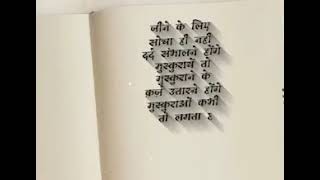 जीने के लिए
सोचा ही नही
दर्द संभालने होंगे
मुस्कुरायें तो
मुस्कुराने के
कर्ज उतारने होंगे
मुस्कुराओं कभी
तो लगता है